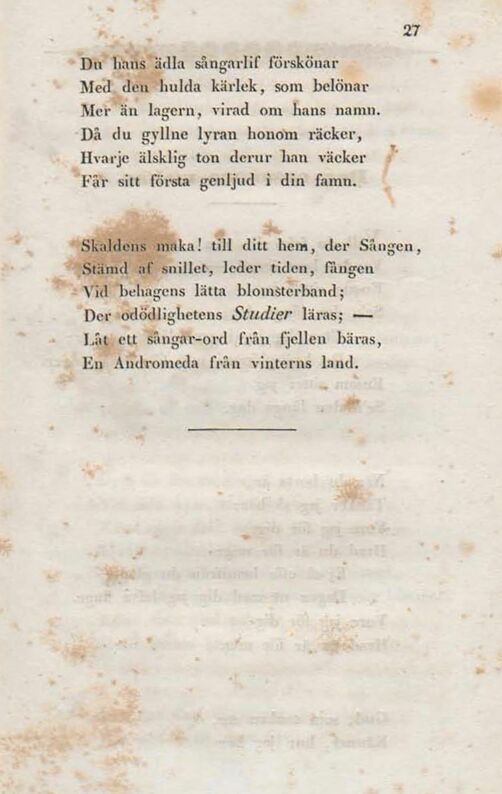 27
Du hans ädla sångarlif förskönar
Med den hulda kärlek, som belönar
Mer än lagern, virad om hans namn.
Då du gyllne lyran honom räcker,
Hvarje älsklig ton derur han väcker
Får sitt första genljud i din famn.
Skaldens maka! till ditt hem, der Sången,
Stämd af snillet, leder tiden, fången
Vid behagens lätta blomsterband;
Der odödlighetens Studier läras; —
Låt ett sångar-ord från fjellen bäras,
En Andromeda från vinterns land.